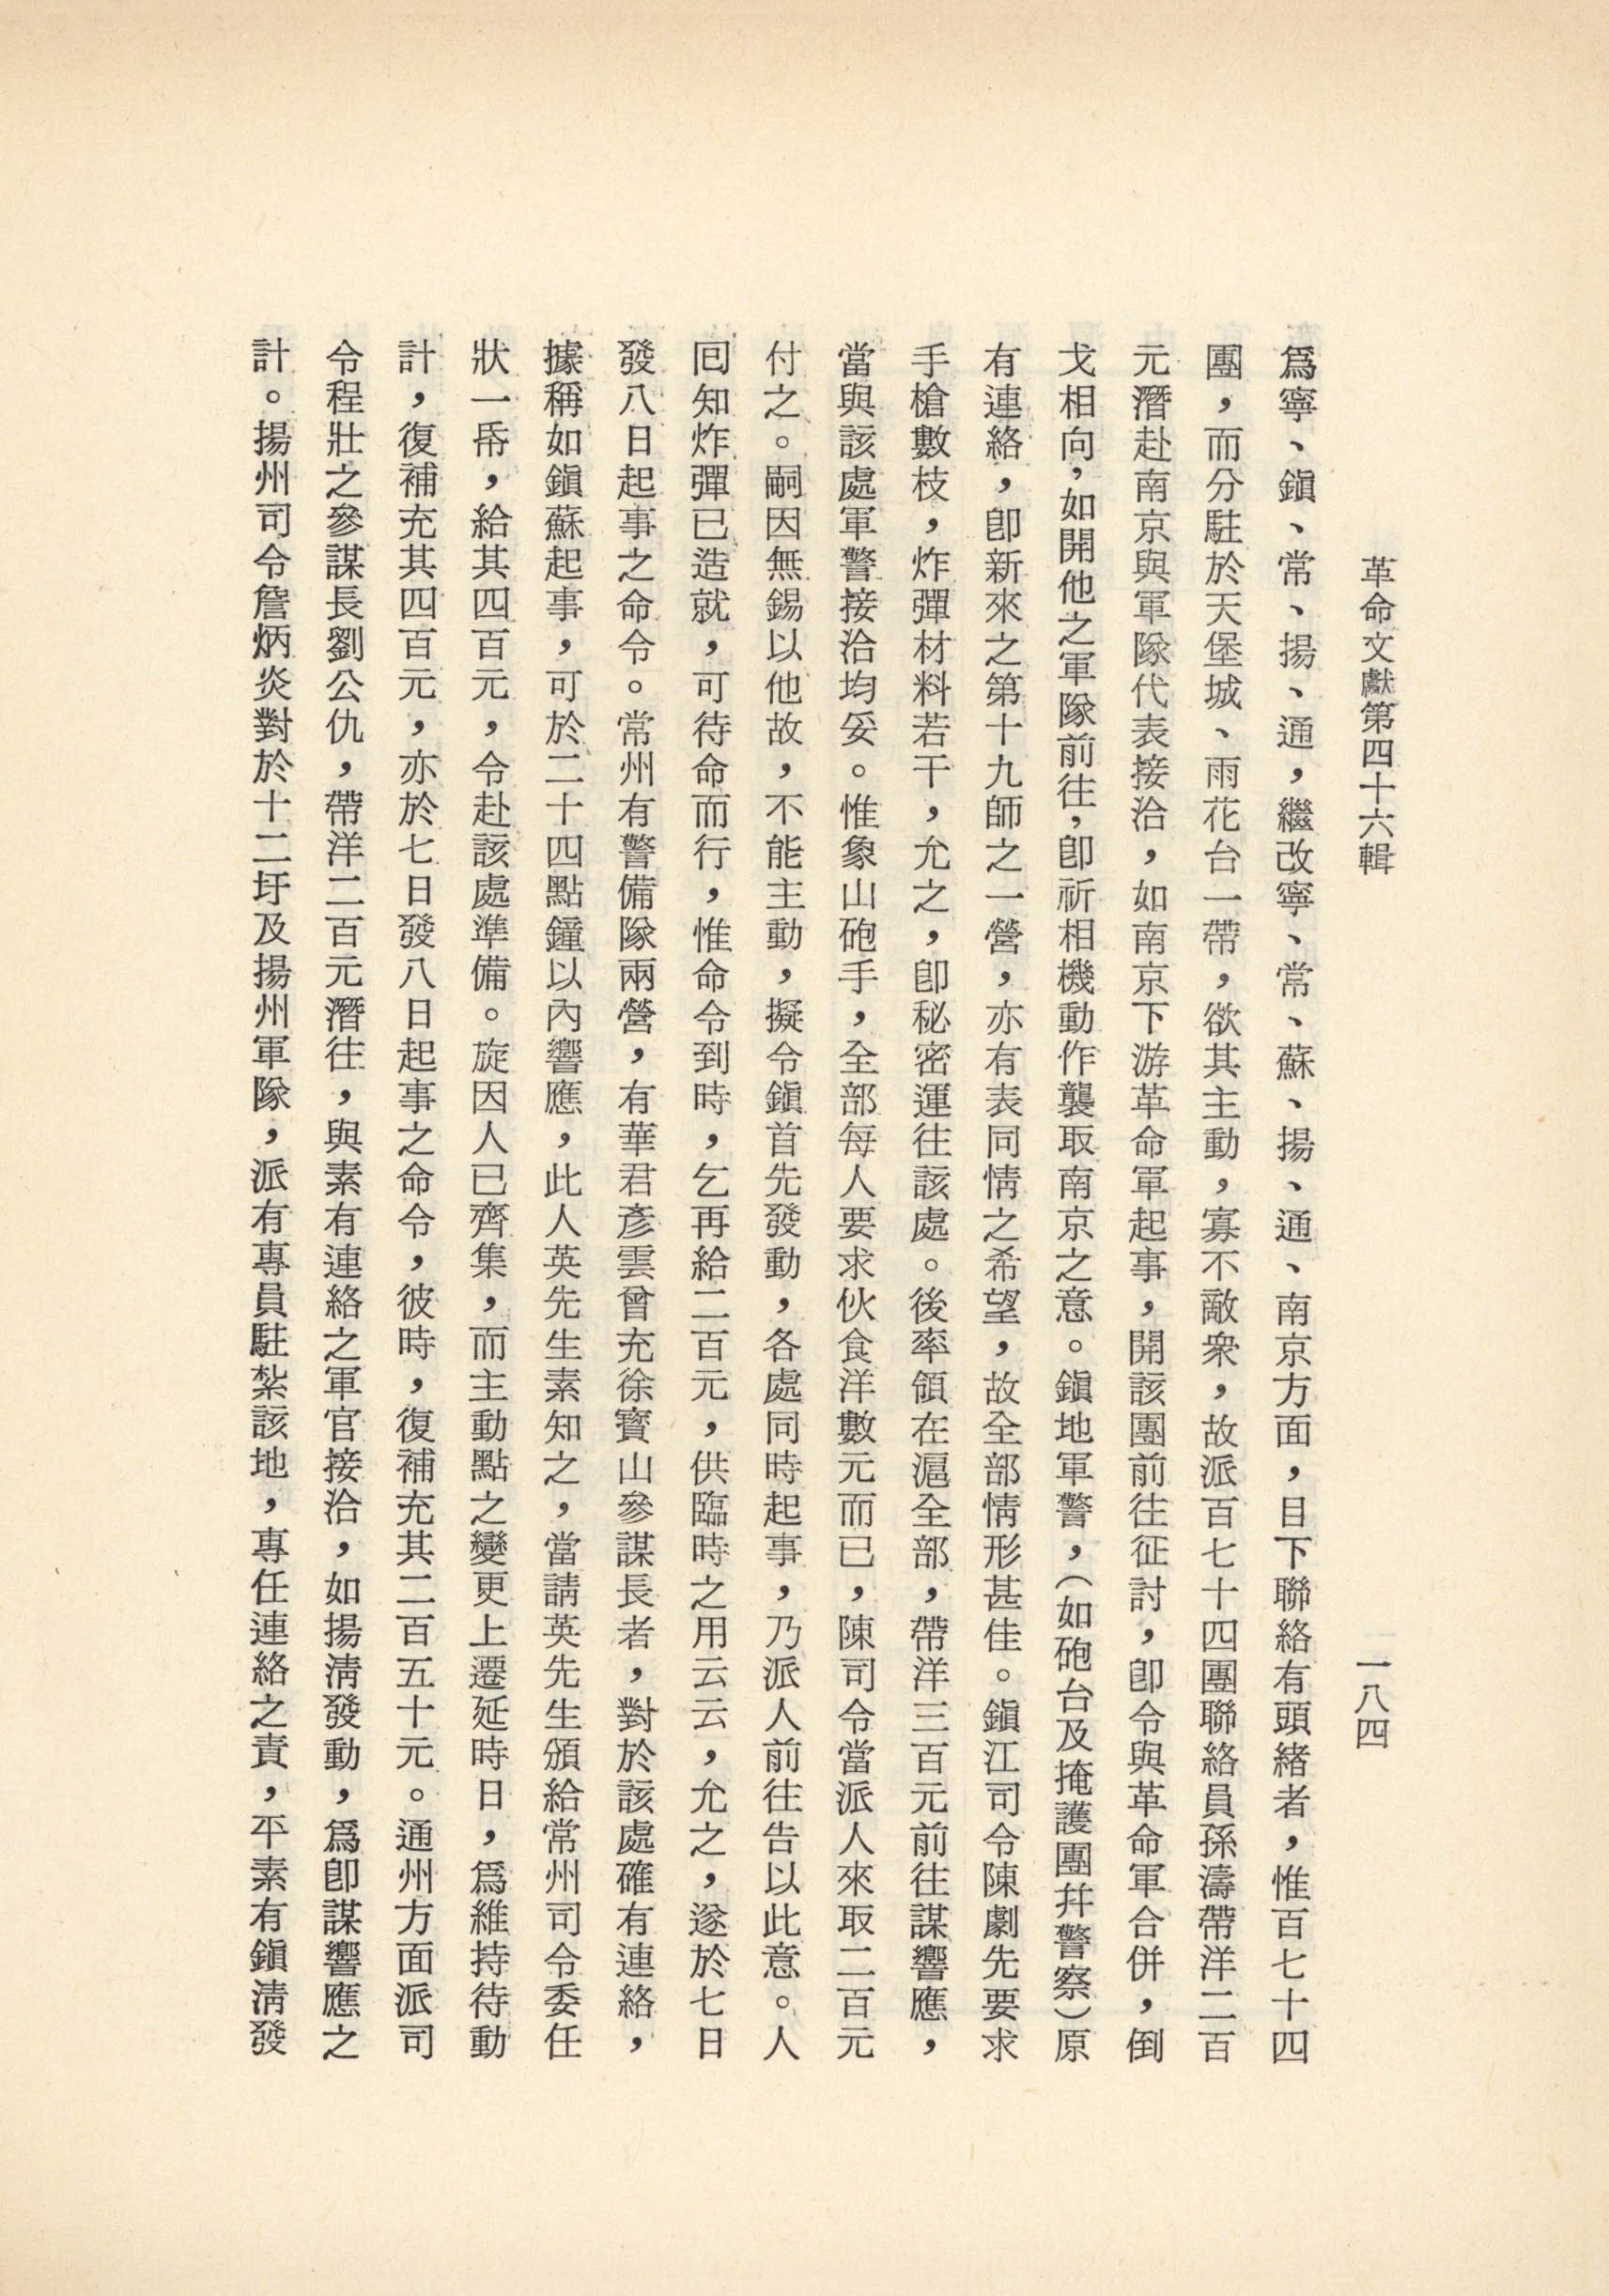 革命文獻第四十六輯
一八四
爲寧、鎭、常、揚、通，繼改寧、常、蘇、揚、通、南京方面，目下聯絡有頭緒者，惟百七十四
團，而分駐於天堡城、雨花台一帶，欲其主動，寡不敵衆，故派百七十四團聯絡員孫濤帶洋二百
元潛赴南京與軍隊代表接洽，如南京下游革命軍起事，開該團前往征討，卽令與革命軍合併，倒
戈相向，如開他之軍隊前往，卽祈相機動作襲取南京之意。鎭地軍警，（如砲台及掩護團幷警察）原
有連絡，卽新來之第十九師之一營，亦有表同情之希望，故全部情形甚佳。鎭江司令陳劇先要求
手槍數枝，炸彈材料若干，允之，卽秘密運往該處。後率領在滬全部，帶洋三百元前往謀響應，
當與該處軍警接洽均妥。惟象山砲手，全部每人要求伙食洋數元而已，陳司令當派人來取二百元
付之。嗣因無錫以他故，不能主動，擬令鎭首先發動，各處同時起事，乃派人前往告以此意。人
囘知炸彈已造就，可待命而行，惟命令到時，乞再給二百元，供臨時之用云云，允之，遂於七日
發八日起事之命令。常州有警備隊兩營，有華君彥雲曾充徐寶山參謀長者，對於該處確有連絡，
據稱如鎭蘇起事，可於二十四點鐘以內響應，此人英先生素知之，當請英先生頒給常州司令委任
狀一帋，給其四百元，令赴該處準備。旋因人已齊集，而主動點之變更上遷延時日，爲維持待動
計，復補充其四百元，亦於七日發八日起事之命令，彼時，復補充其二百五十元。通州方面派司
令程壯之參謀長劉公仇，帶洋二百元潛往，與素有連絡之軍官接洽，如揚淸發動，爲卽謀響應之
計。揚州司令詹炳炎對於十二圩及揚州軍隊，派有專員駐紮該地，專任連絡之責，平素有鎭淸發